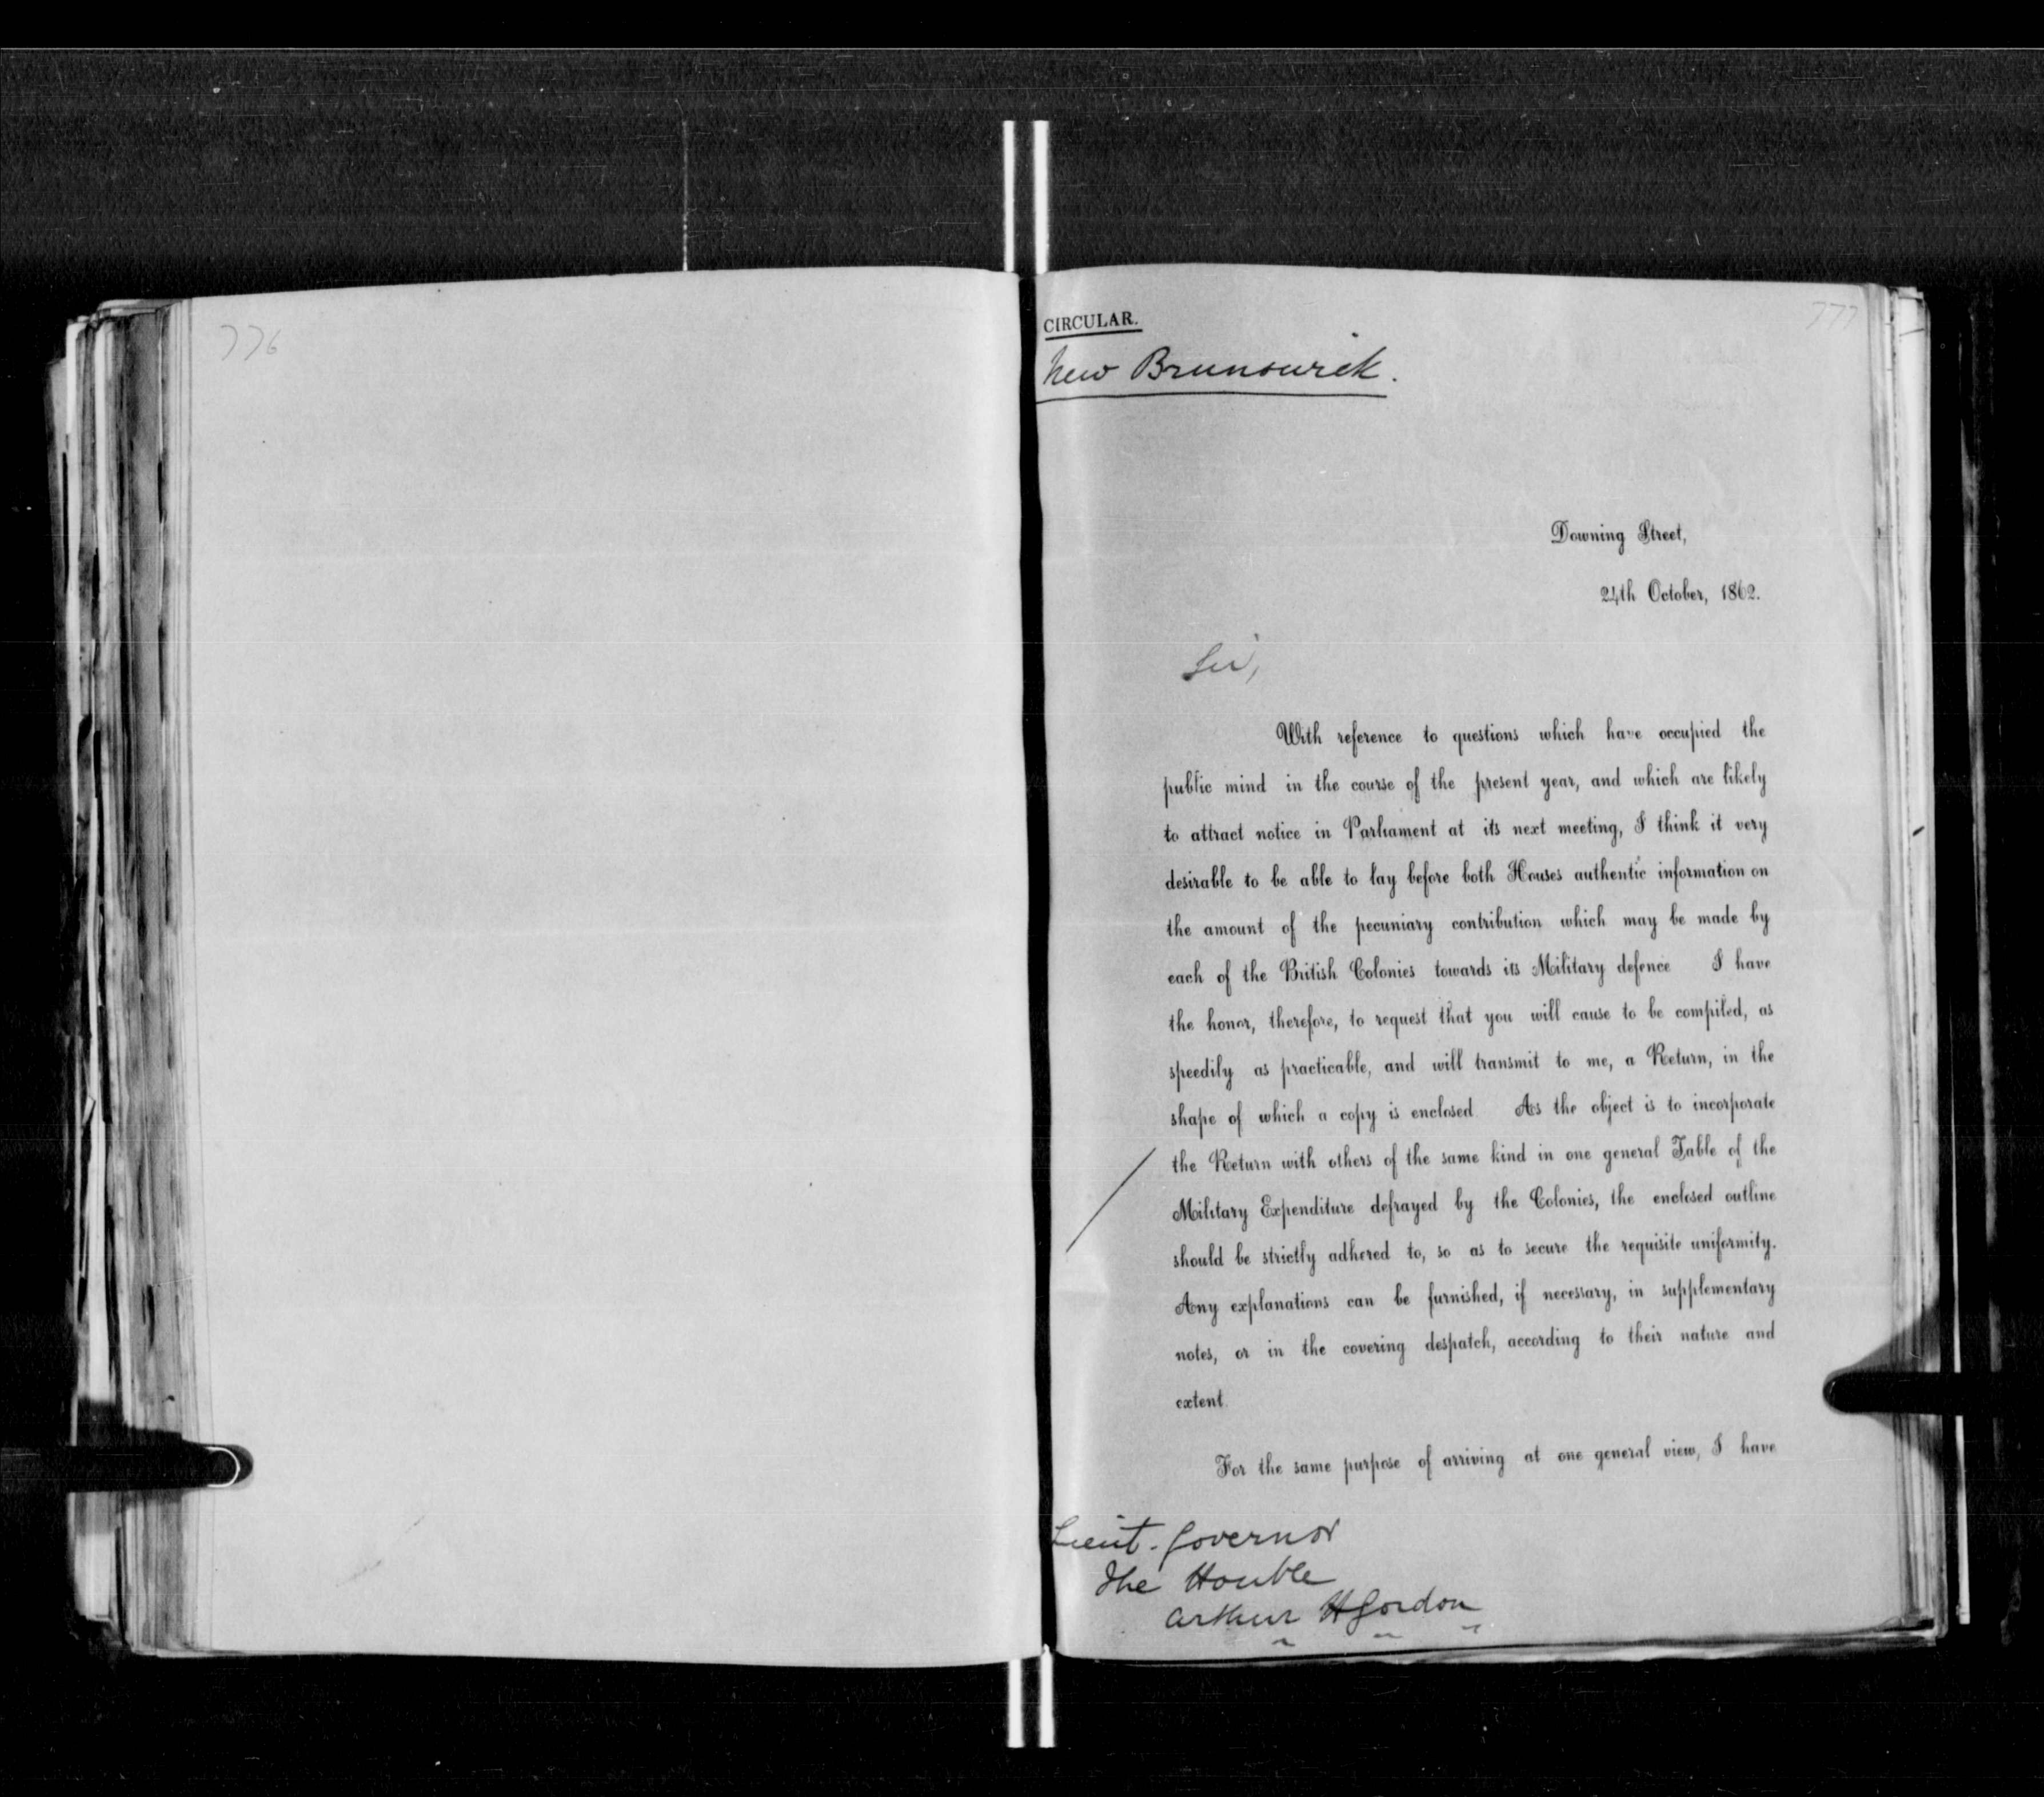 776
777
CIRCULAR.
New Brunswick.
Downing Street,
24th October, 1862.
Sir,
With reference to questions which have occupied the
public mind in the course of the present year, and which are likely
to attract notice in Parliament at its next meeting, I think it very
desirable to be able to lay before both Houses authentic information on
the amount of the pecuniary contribution which may be made by
each of the British Colonies towards its Military defence I have
the honor, therefore, to request that you will cause to be compiled, as
speedily as practicable, and will transmit to me, a Return, in the
shape of which a copy is enclosed As the object is to incorporate
the Return with others of the same kind in one general Table of the
Military Expenditure defrayed by the Colonies, the enclosed outline
should be strictly adhered to, so as to secure the requisite uniformity.
Any explanations can be furnished, if necessary, in supplementary
notes, or in the covering despatch, according to their nature and
extent.
For the same purpose of arriving at one general view, I have
Lieut. Governor
The Honble
Arthur H Gordon